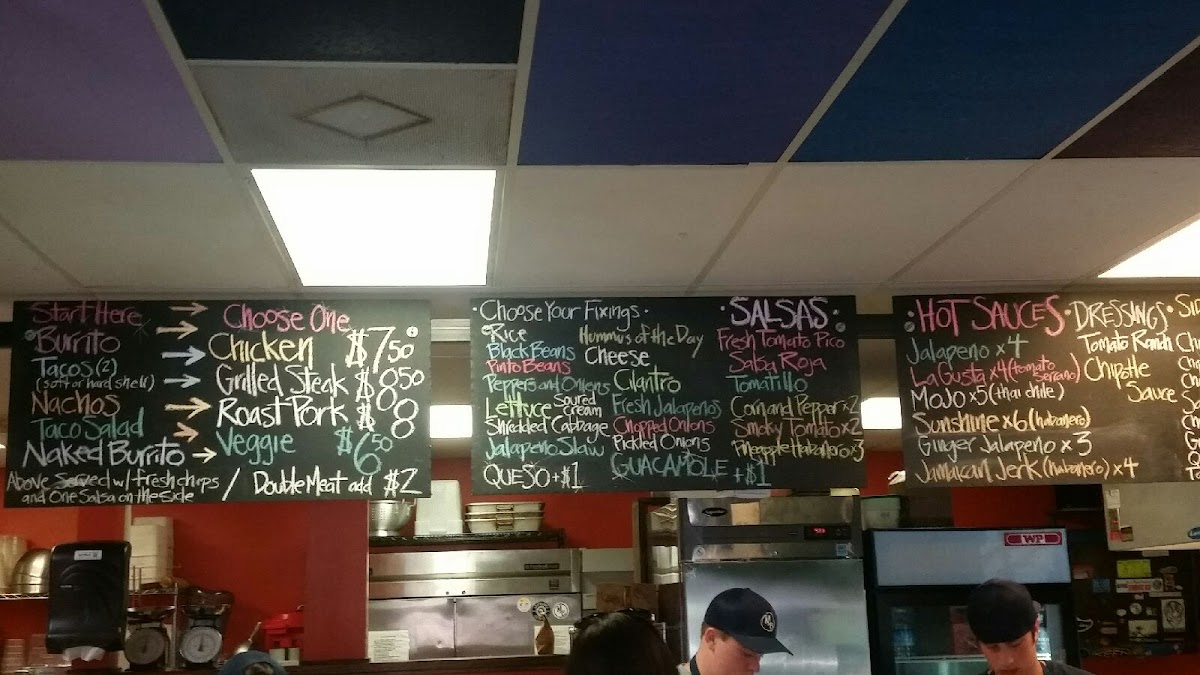 Start Here → Choose One
Burrito → Chicken $7.50
Tacos (2) →
(soft or hard shell) → Grilled Steak $8.50
Nachos → Roast Pork $8
Taco Salad → Veggie $6.50
Naked Burrito →
Above Served w/ fresh chips
and One Salsa on the Side / Double Meat add $2
· Choose Your Fixings ·
Rice
Black Beans
Pinto Beans
Peppers and Onions
Lettuce Soured Cream
Shredded Cabbage
Jalapeno Slaw
QUESO +$1
Hummus of the Day
Cheese
Cilantro
Fresh Jalapenos
Chopped Onions
Pickled Onions
GUACAMOLE +$1
· SALSAS ·
Fresh Tomato Pico
Salsa Roja
Tomatillo
Corn and Pepper x2
Smoky Tomato x2
Pineapple Habanero x3
· HOT SAUCES ·
Jalapeno x4
La Gusta x4 (tomato Serrano)
MoJo x5 (thai chile)
Sunshine x6 (habanero)
Ginger Jalapeno x3
Jamaican Jerk (habanero) x4
DRESSINGS ·
Tomato Ranch
Chipotle
Sauce
WP